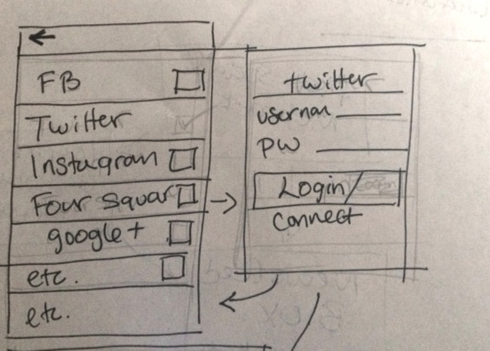 FB
Twitter
Instagram
Four Squar
google+
etc.
etc.
twitter
usernam
PW
Login/
connect